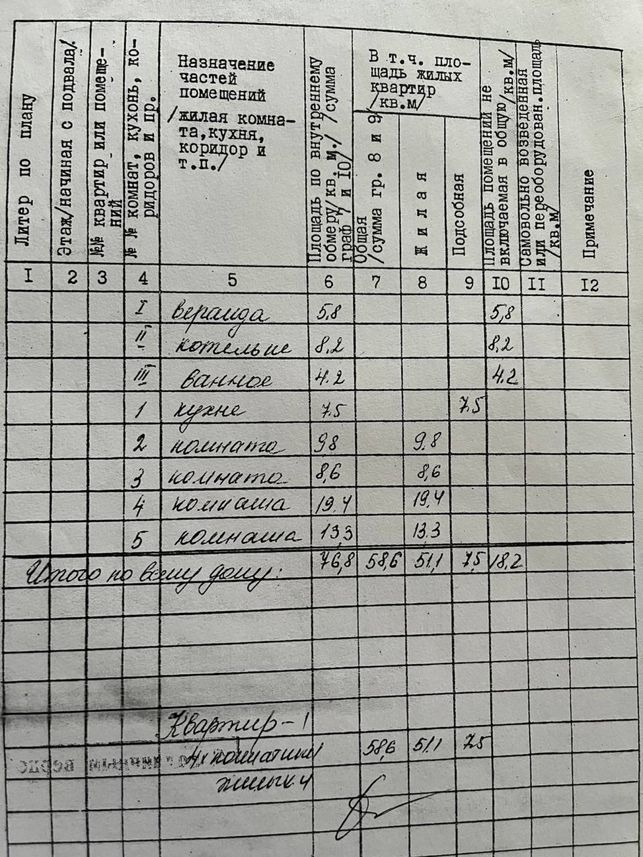 Литер по плану
Этаж/начиная с подвала/
№№ квартир или помеще-
ний
№ № комнат, кухонь, ко-
ридоров и пр.
Назначение
частей
помещений
/жилая комна-
та,кухня,
коридор и
т.п./
Площадь по внутреннему
обмеру/кв. м./ /сумма
граф 7 и 10/
В т.ч. пло-
щадь жилых
квартир
/кв.м/
Общая
/сумма гр. 8 и 9/
Жилая
Подсобная
Площадь помещений не
включаемая в общую/кв.м/
Самовольно возведенная
или переоборудован.площадь
/кв.м/
Примечание
I 2 3 4 5 6 7 8 9 10 II 12
I веранда 5,8 5,8
II котельне 8,2 8,2
III ванное 4.2 4.2
1 кухне 7.5 7.5
2 комната 9.8 9.8
3 комната 8,6 8,6
4 комната 19.4 19.4
5 комната 13,3 13.3
Итого по всему дому: 76,8 58,6 51,1 7,5 18,2
Квартир-1
4х комнатных 1 58,6 51.1 7.5
жилых 4